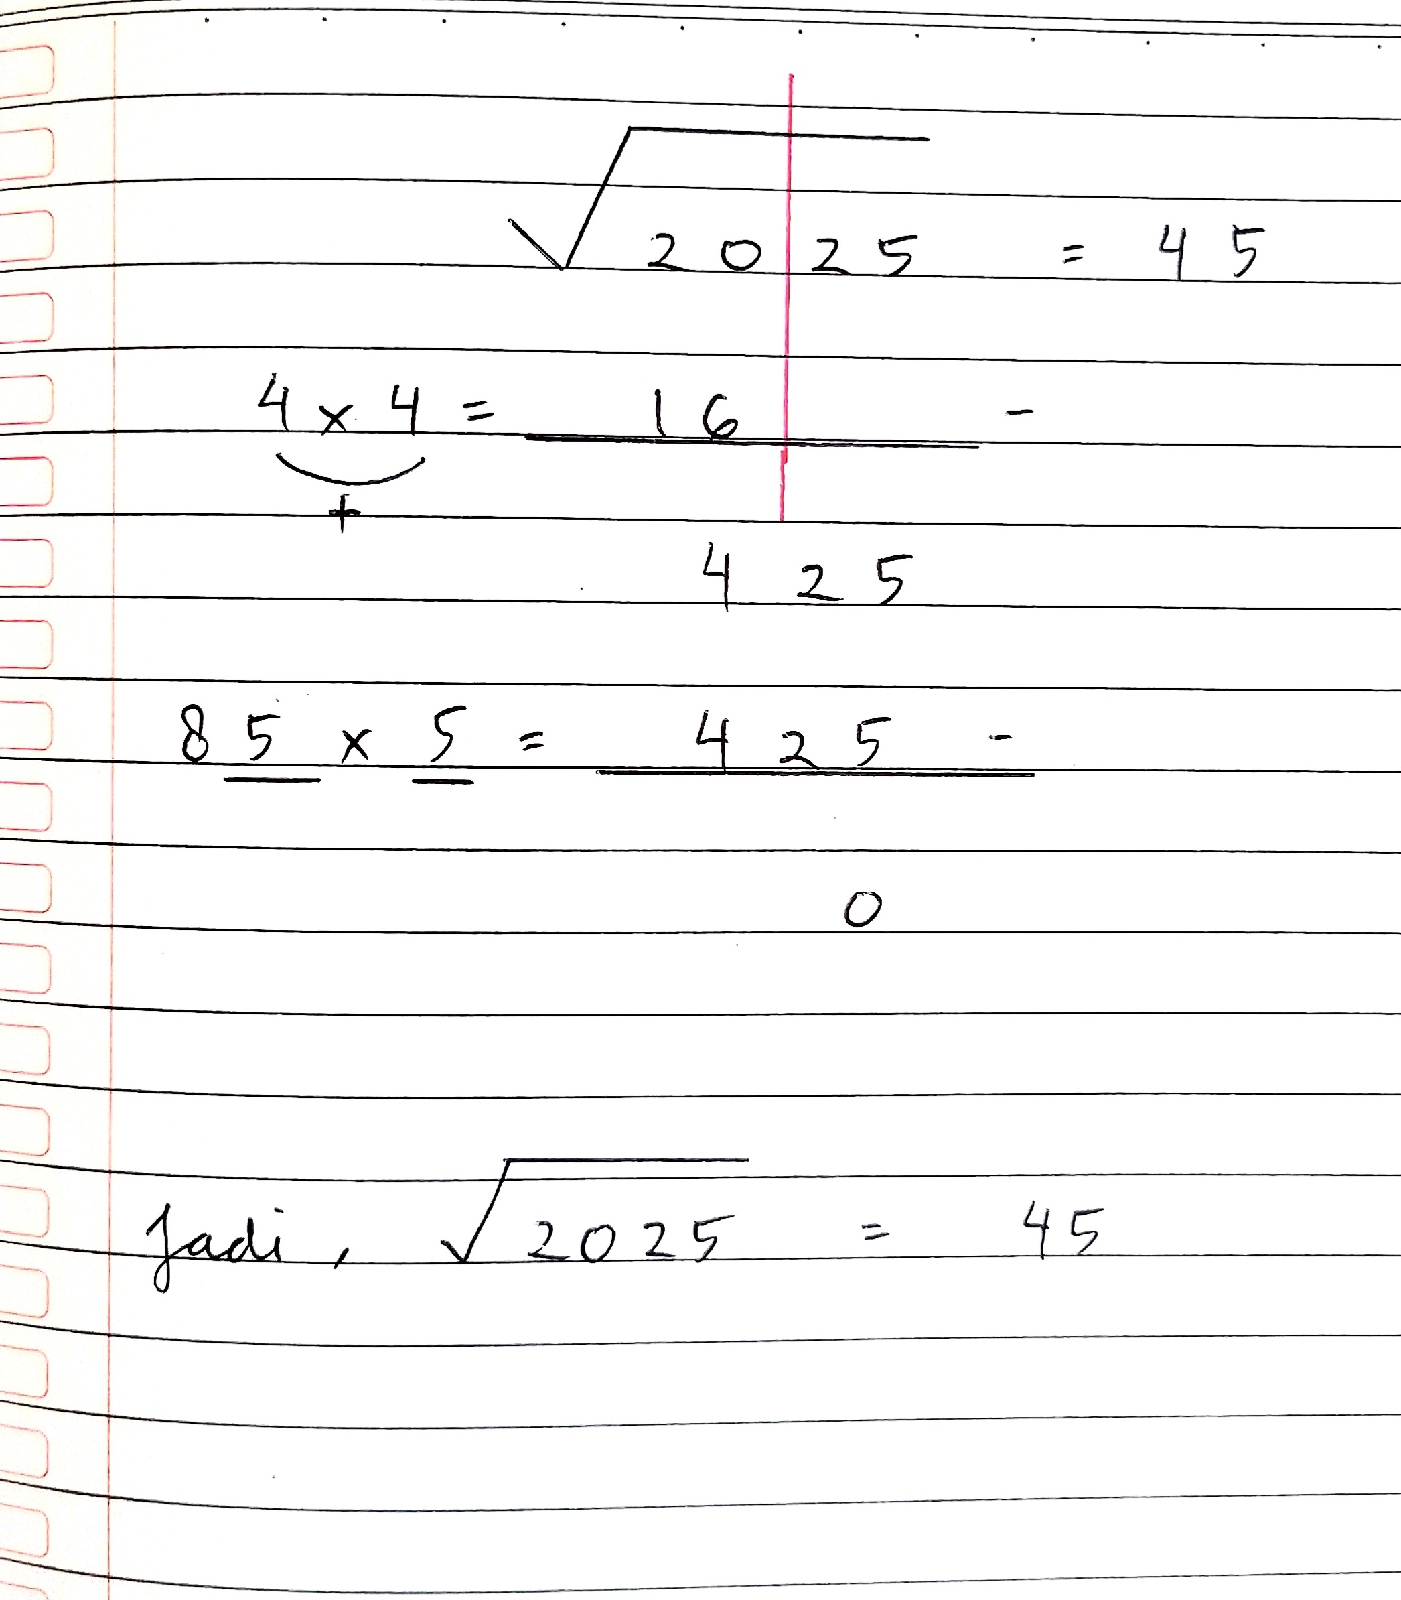 √2025 = 45
4 x 4 = 16 -
+
425
85 x 5 = 425 -
0
Jadi, √2025 = 45